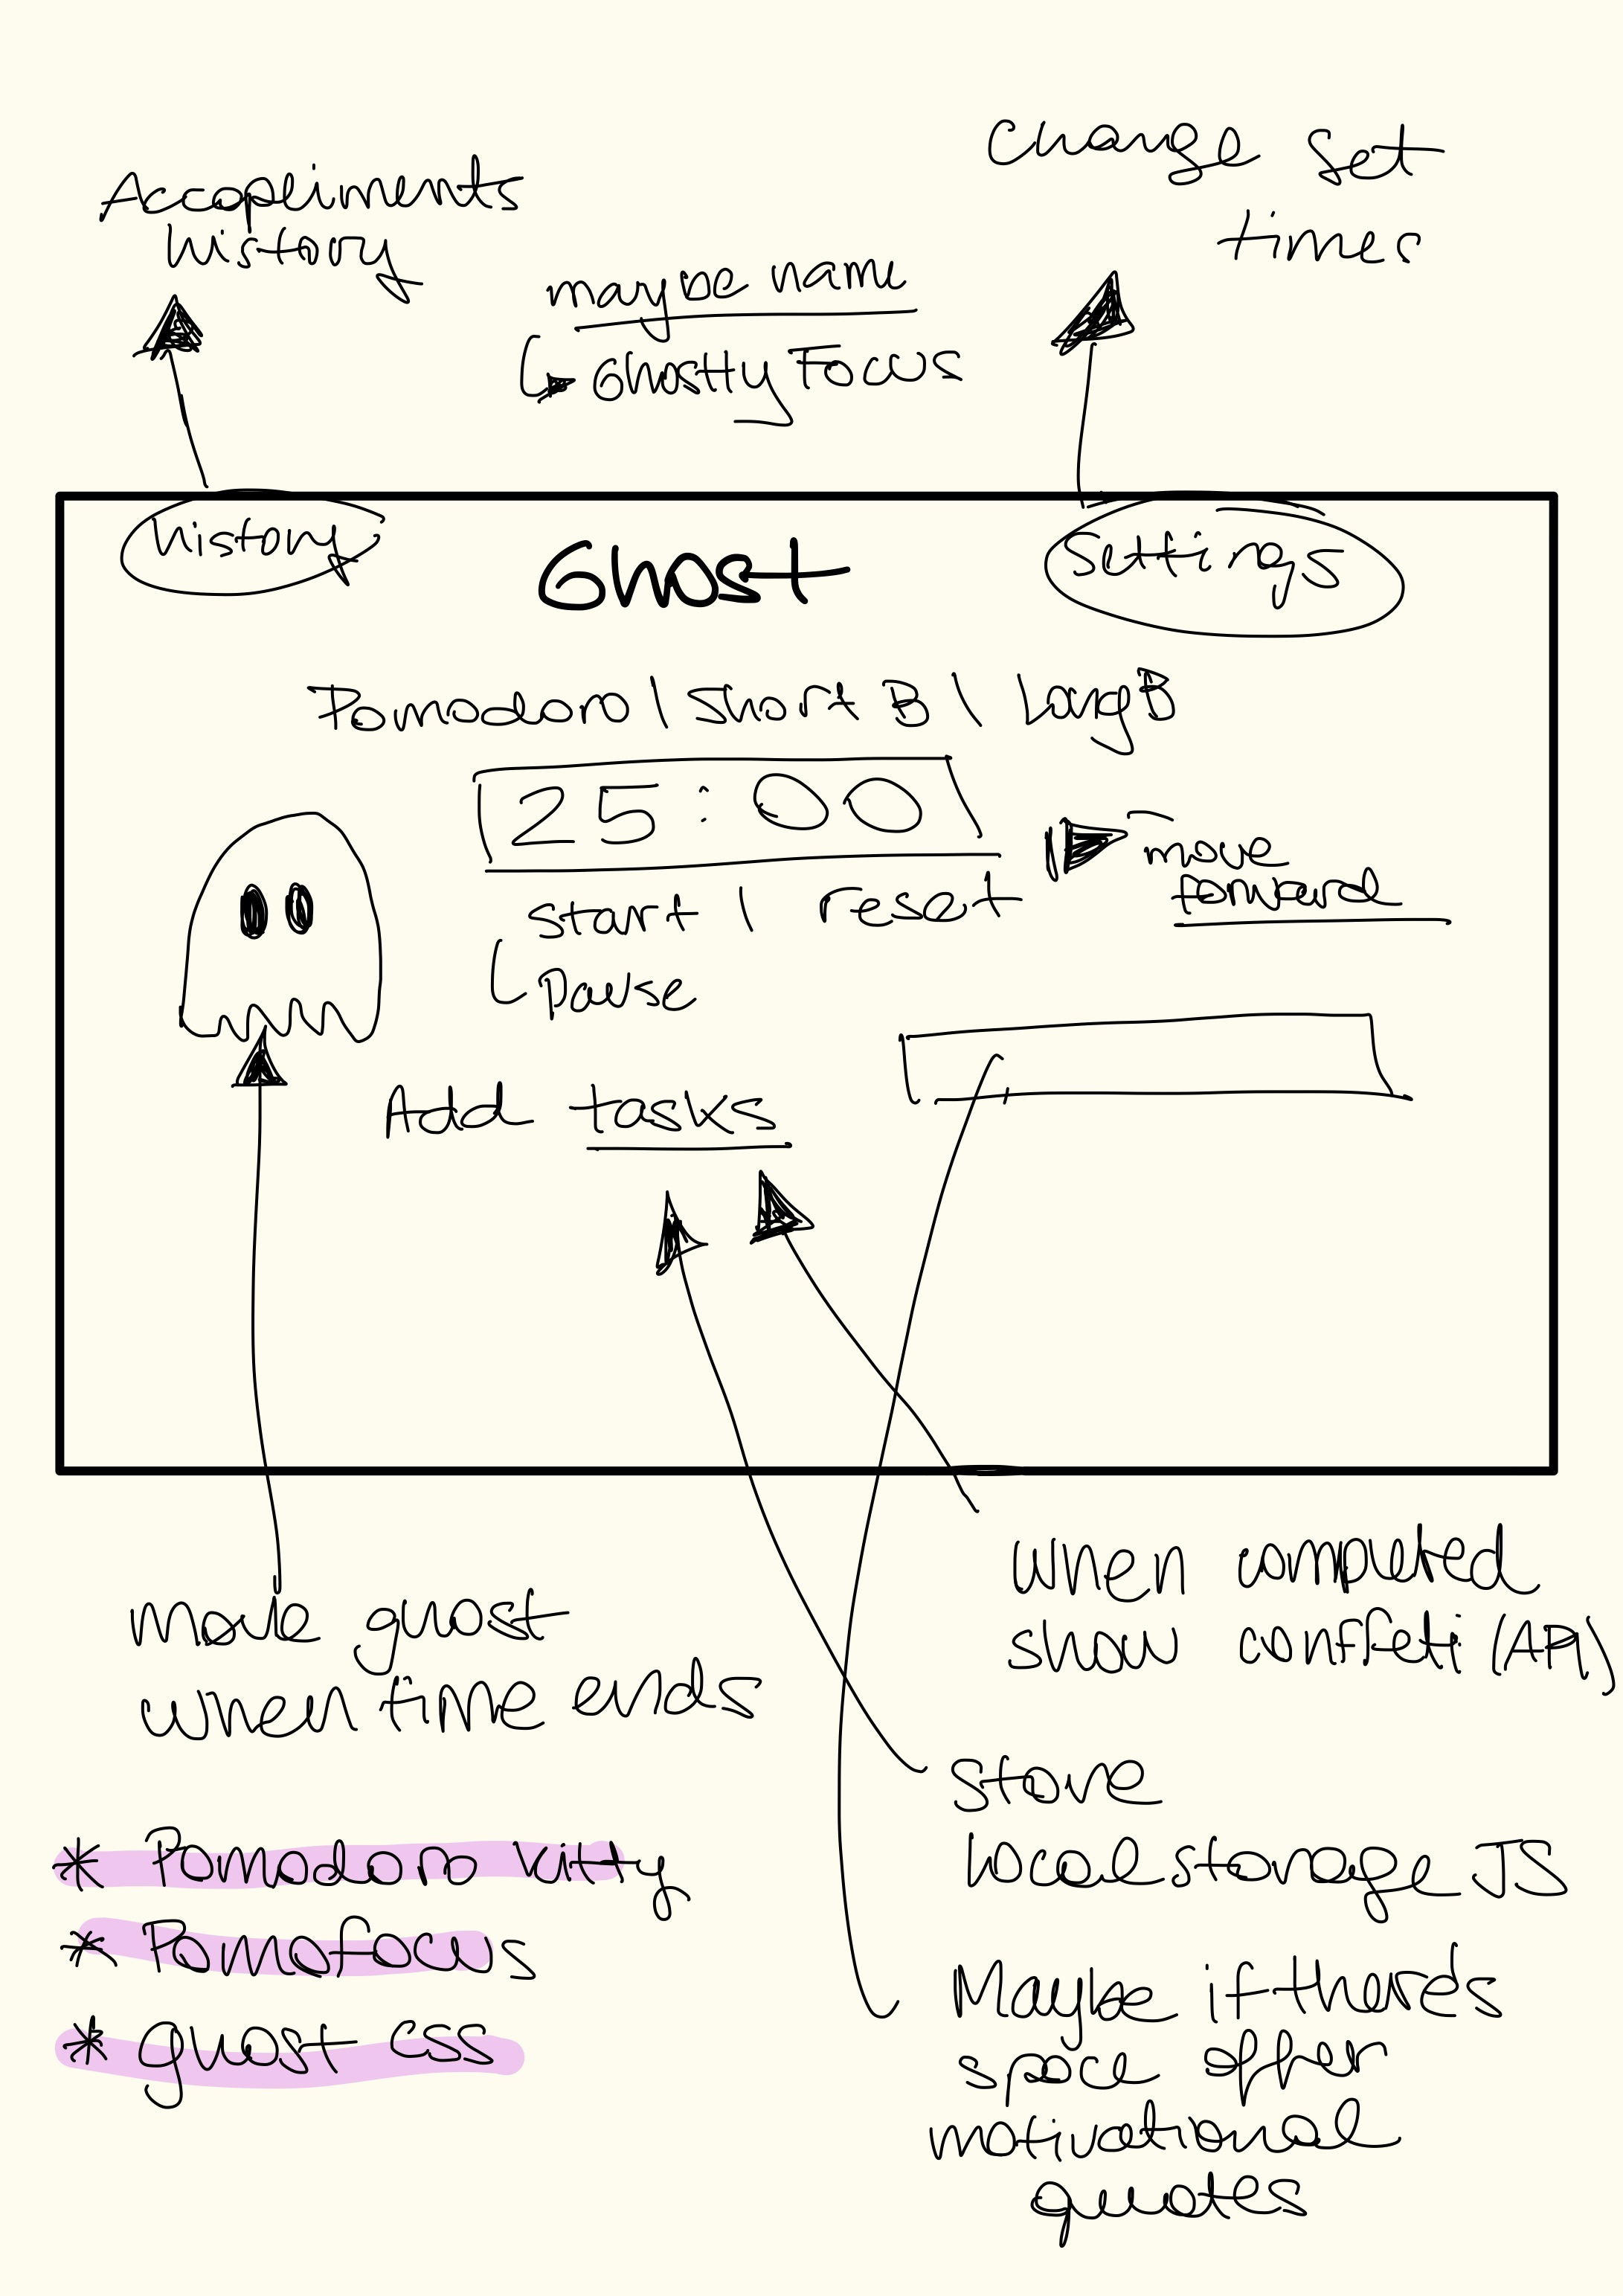 Accopliments
history
Change Set
times
maybe name
Ghostly Focus
history
Ghost
Settings
Pomodoro | Short B | Long B
25:00
start | reset
Pause
move
forward
Add tasks
move ghost
when time ends
when completed
show confeti (API)
store
localstorage JS
Maybe if there's
space offer
motivational
quotes
* Pomodoro kitty
* Pomofocus
* ghost css